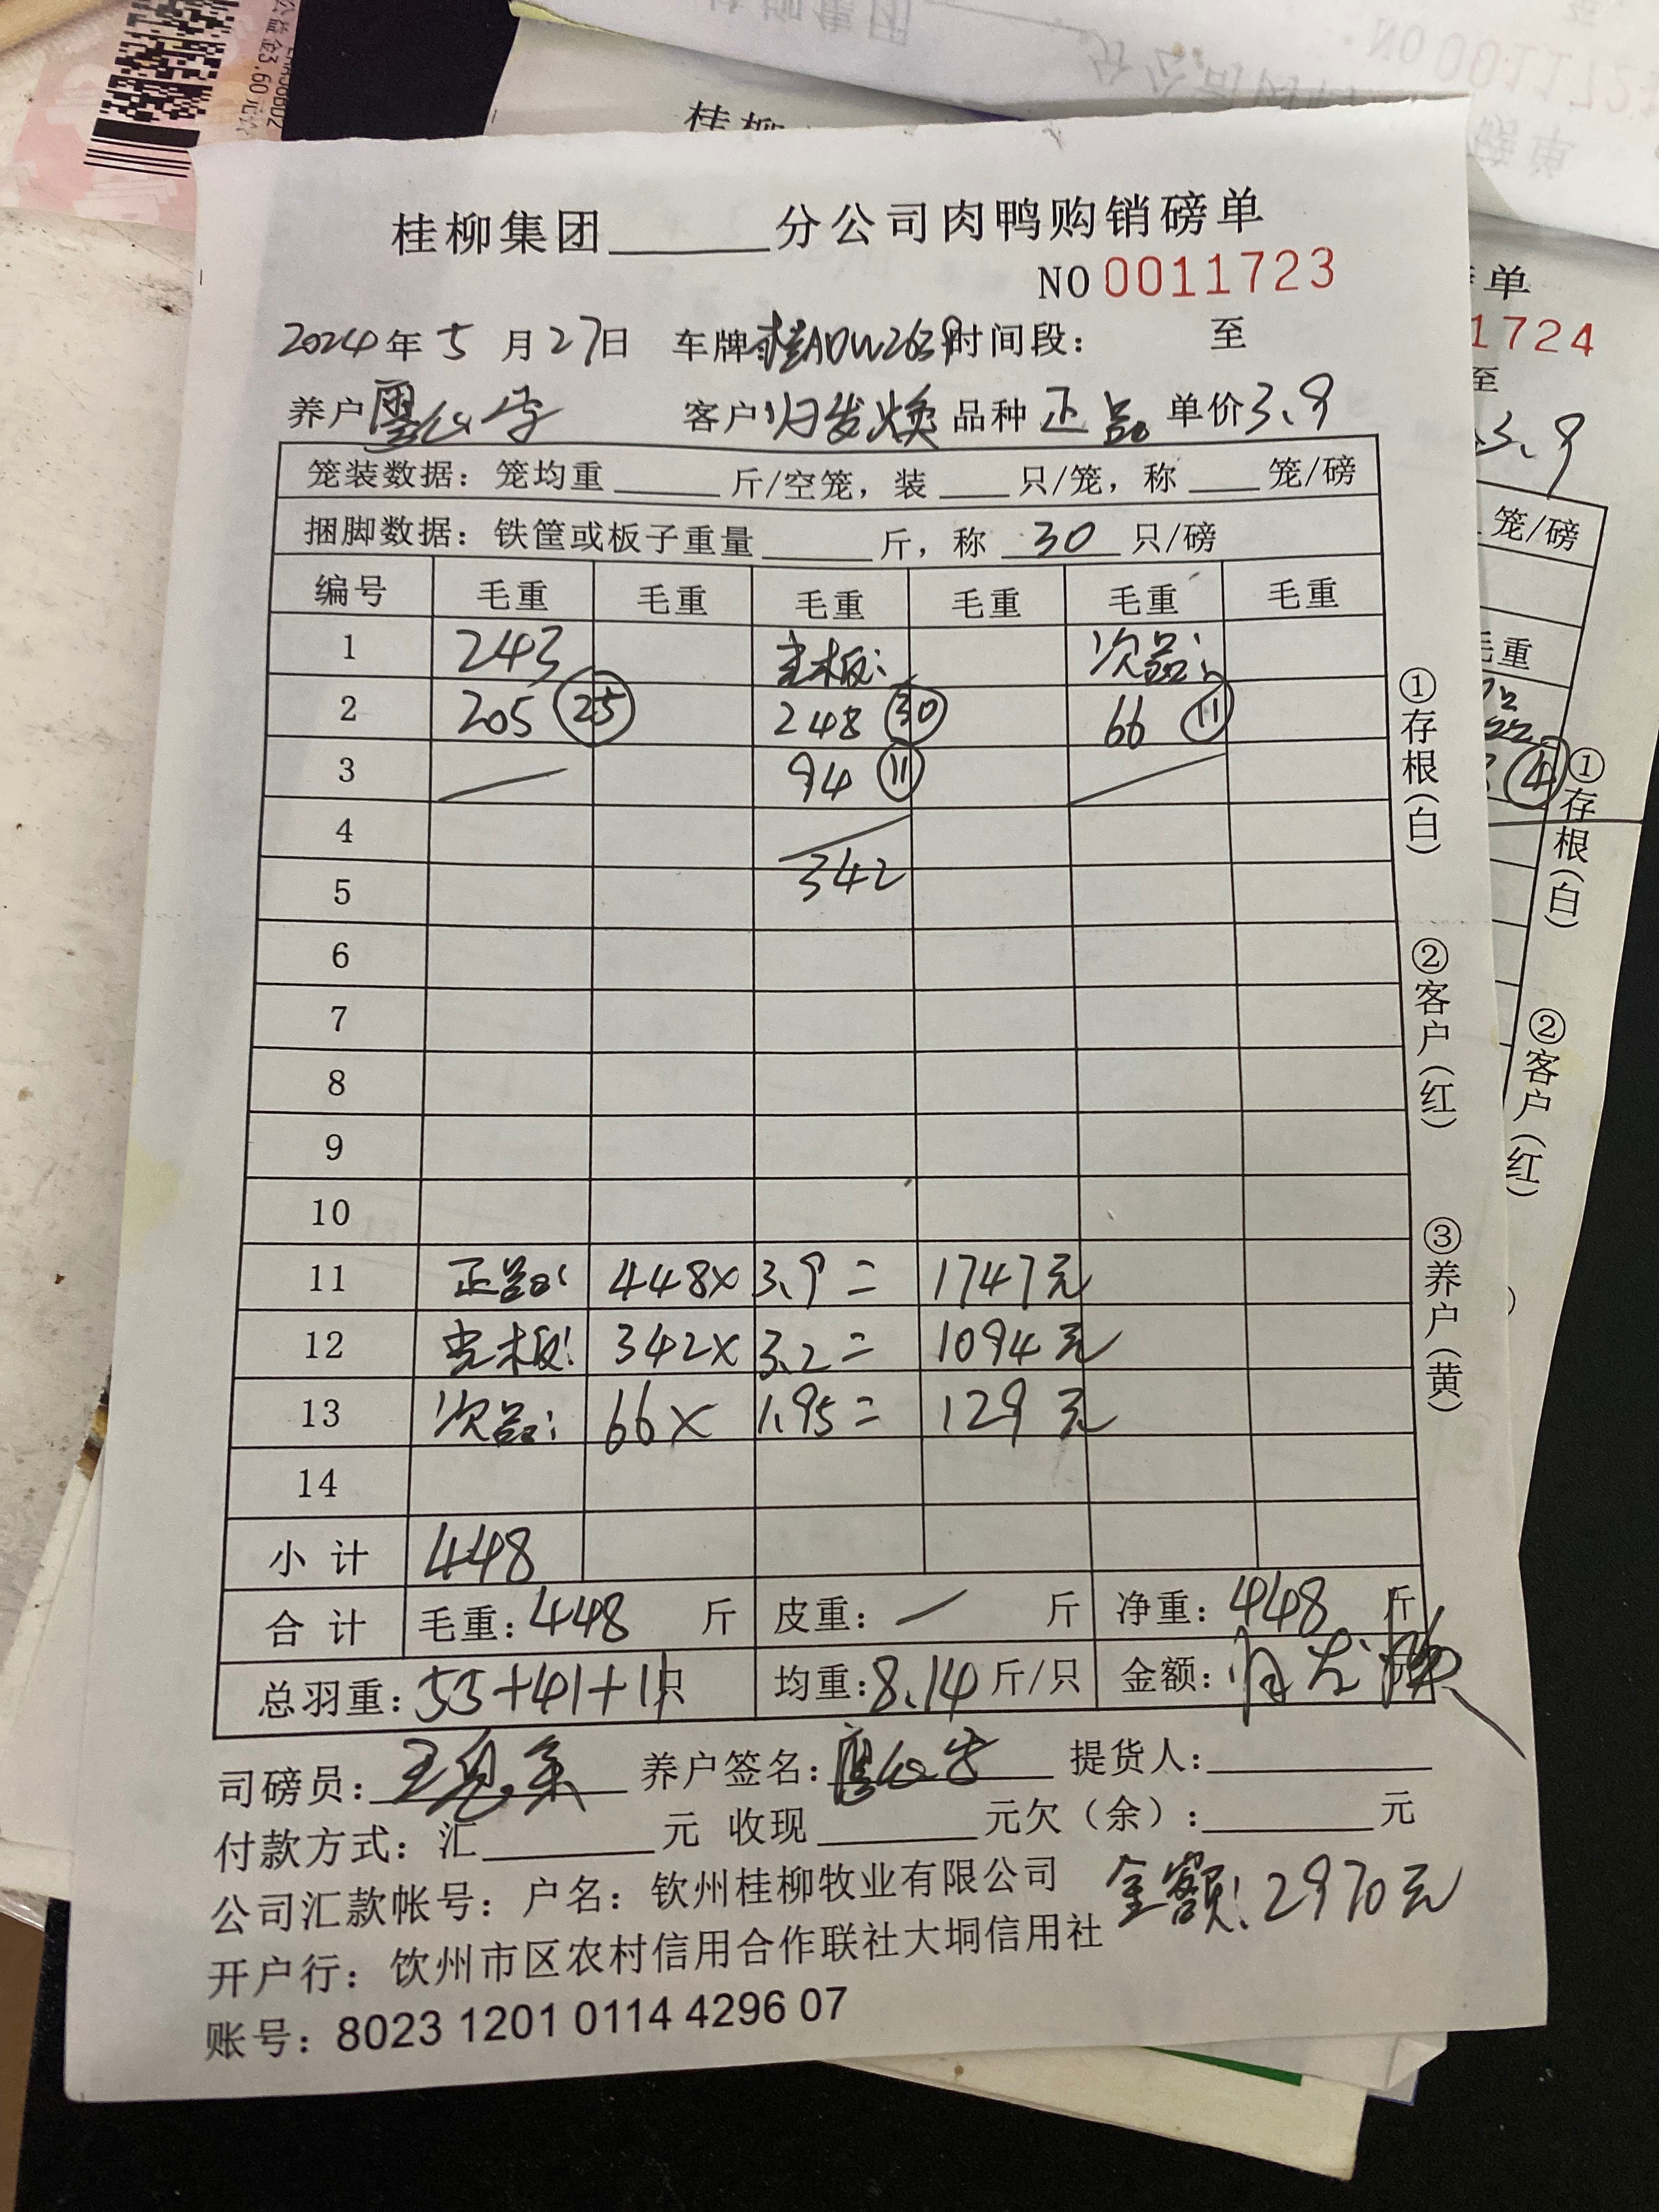 公益金3.60元
桂柳
桂柳集团______分公司肉鸭购销磅单
NO 0011723
2024年5月27日 车牌桂ADW2639时间段： 至
养户 客户归发焕 品种 正品 单价3.9
笼装数据：笼均重______斤/空笼，装____只/笼，称____笼/磅
捆脚数据：铁筐或板子重量______斤，称 30 只/磅
编号 毛重 毛重 毛重 毛重 毛重 毛重
1 243 板： 次品：
2 205 25 248 30 66 11
3 94 11
4
5 342
6
7
8
9
10
11 正品： 448× 3.9＝ 1747元
12 板： 342× 3.2＝ 1094元
13 次品： 66× 1.95＝ 129元
14
小计 448
合计 毛重：448 斤 皮重：— 斤 净重：448 斤
总羽重：55+41+11只 均重：8.14斤/只 金额：归发焕
司磅员： 养户签名： 提货人：
付款方式：汇______元 收现______元欠（余）：______元
公司汇款帐号：户名：钦州桂柳牧业有限公司
金额：2970元
开户行：钦州市区农村信用合作联社大垌信用社
账号：8023 1201 0114 4296 07
①存根（白） ②客户（红） ③养户（黄）
单
1724
至
3.9
笼/磅
毛重
4
①存根（白） ②客户（红）